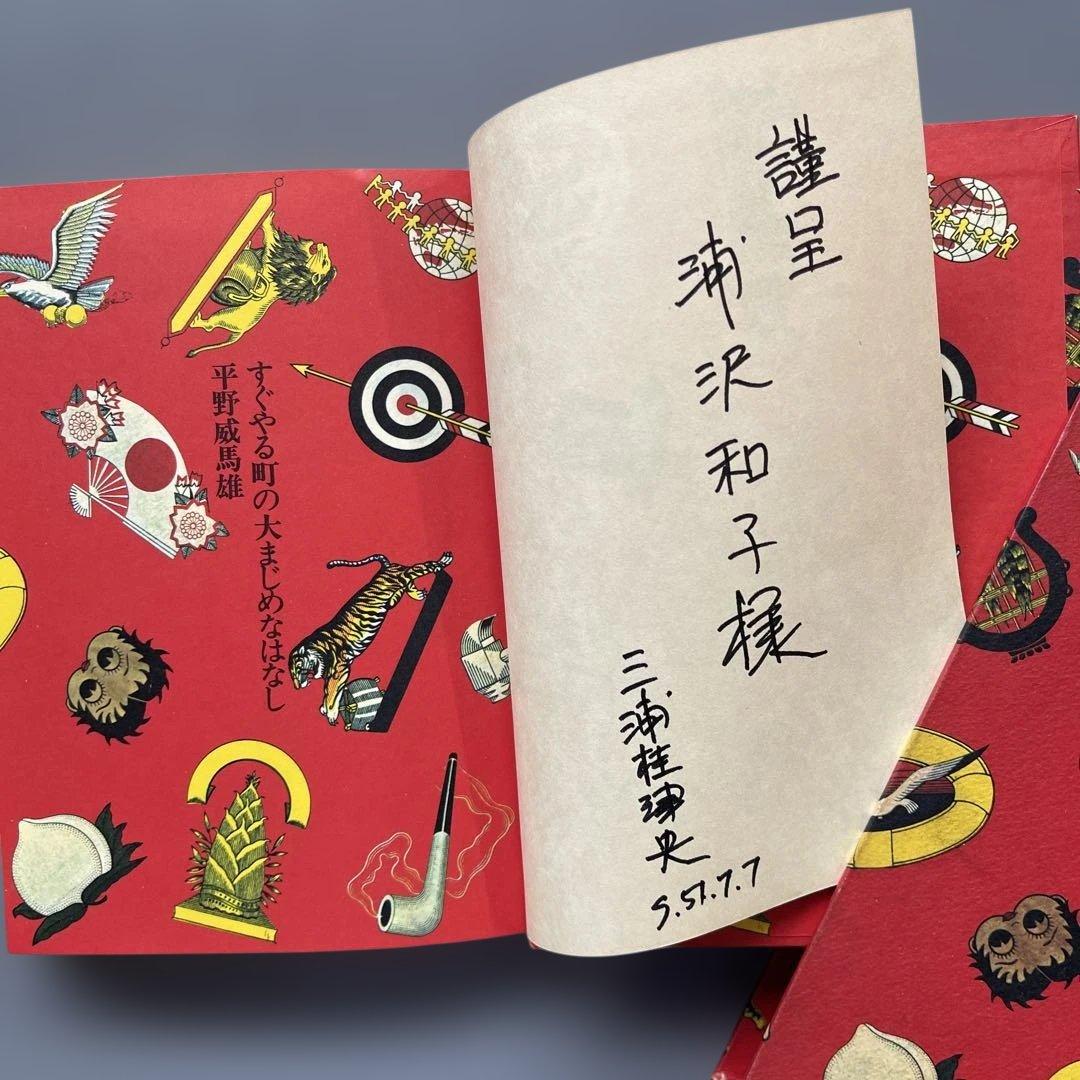 謹呈
浦沢和子様
三浦桂津央
S.51.7.7
すぐやる町の大まじめなはなし
平野威馬雄